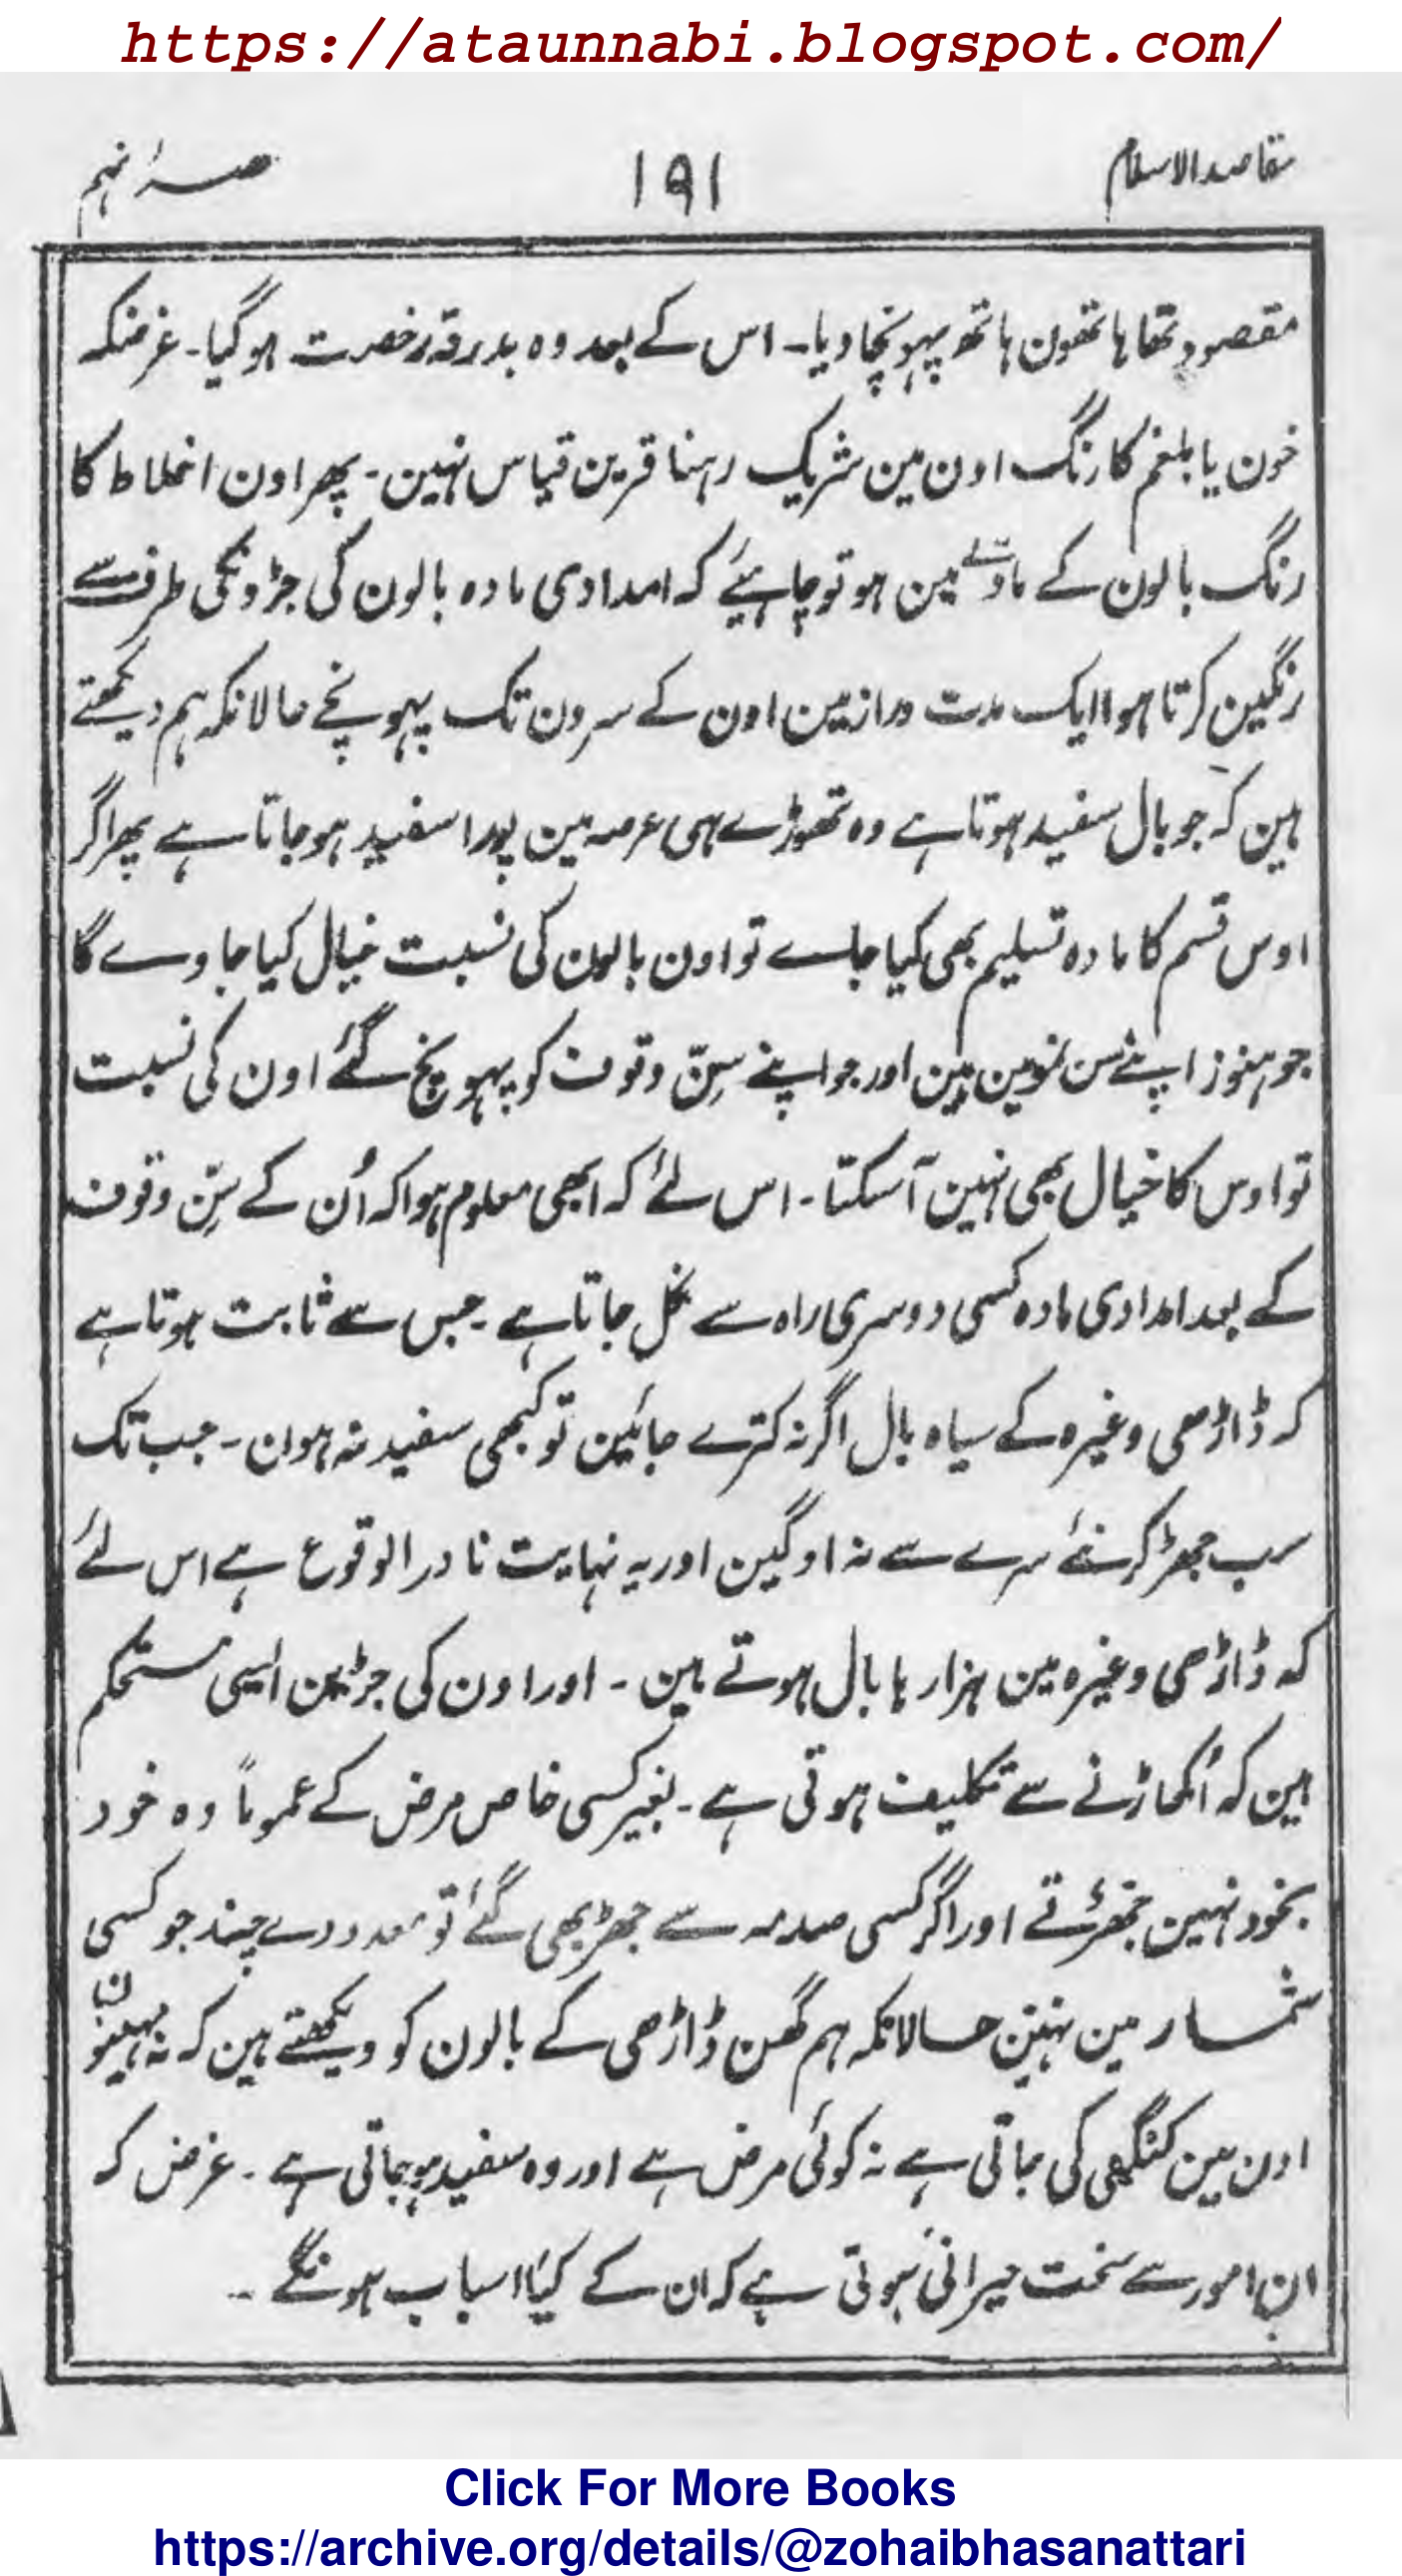 https://ataunnabi.blogspot.com/
مقاصد الاسلام
۱۹۱
حصہٴ نہم
مقصود تھا ہاتھون ہاتھ پہونچا دیا۔ اس کے بعد وہ بدرقہ رخصت ہوگیا۔ غرضکہ
خون یا بلغم کا رنگ اون مین شریک رہنا قرین قیاس نہین۔ پھر اون اخلاط کا
رنگ بالون کے مادے مین ہو تو چاہیئے کہ امدادی مادہ بالون کی جڑونکی طرف سے
رنگین کرتا ہوا ایک مدت دراز مین اون کے سرون تک پہونچے حالانکہ ہم دیکھتے
ہین کہ جو بال سفید ہوتا ہے وہ تھوڑے ہی عرصہ مین پورا سفید ہوجاتا ہے پھر اگر
اوس قسم کا مادہ تسلیم بھی کیا جاے تو اون بالون کی نسبت خیال کیا جاوے گا
جو ہنوز اپنے سن نمو مین ہین اور جو اپنے سِنّ وقوف کو پہونچ گئے اون کی نسبت
تو اوس کا خیال بھی نہین آسکتا۔ اس لئے کہ ابھی معلوم ہوا کہ اُن کے سِنّ وقوف
کے بعد امدادی مادہ کسی دوسری راہ سے نکل جاتا ہے۔ جس سے ثابت ہوتا ہے
کہ ڈاڑھی وغیرہ کے سیاہ بال اگر نہ کترے جائین تو کبھی سفید نہ ہون۔ جب تک
سب جھڑ کر نئے سرے سے نہ اوگین اور یہ نہایت نادر الوقوع ہے اس لئے
کہ ڈاڑھی وغیرہ مین ہزار ہا بال ہوتے ہین۔ اور اون کی جڑین ایسی مستحکم
ہین کہ اُکھاڑنے سے تکلیف ہوتی ہے۔ بغیر کسی خاص مرض کے عموماً وہ خود
بخود نہین جھڑتے اور اگر کسی صدمہ سے جھڑ بھی گئے تو معدودے چند جو کسی
شمار مین نہین حالانکہ ہم گھن ڈاڑھی کے بالون کو دیکھتے ہین کہ نہ مہینون
اون مین کنگھی کی جاتی ہے نہ کوئی مرض ہے اور وہ سفید ہوجاتی ہے۔ غرض کہ
ان امور سے سخت حیرانی ہوتی ہے کہ ان کے کیا اسباب ہونگے۔
Click For More Books
https://archive.org/details/@zohaibhasanattari